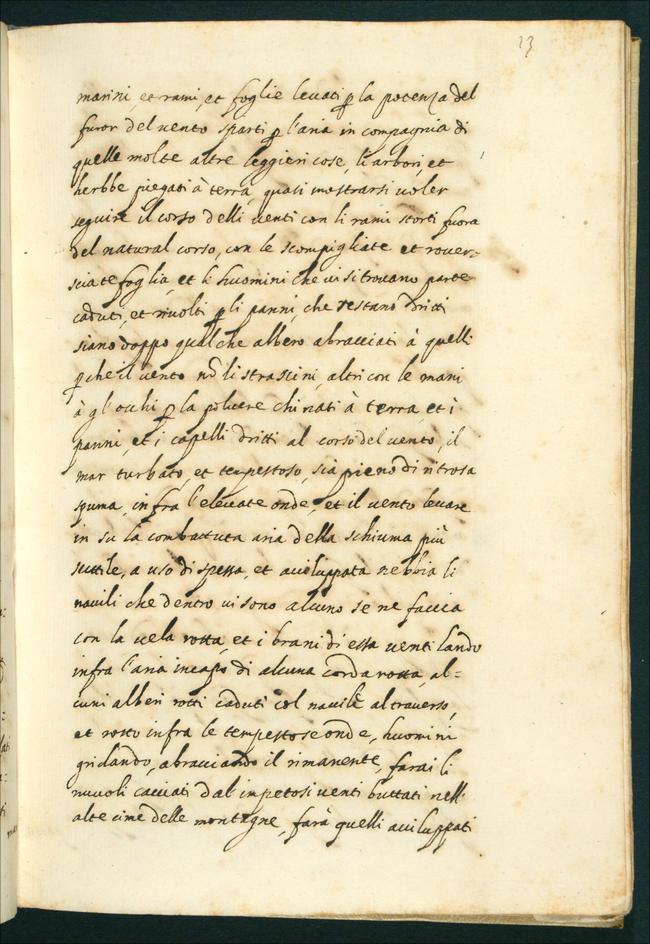 13
marini, et rami, et foglie levati p la potenza del
furor del vento sparti p l'aria in compagnia di
quelle molte altre leggieri cose, li arbori, et
herbbe piegati à terra, quasi mostrarsi voler
seguire il corso delli venti con li rami storti fuora
del natural corso, con le scompigliate et rover=
sciate foglia, et li huomini che vi si trovano parte
caduti, et rivolti p li panni, che restano dritti
siano doppo qualche albero abracciati à quelli
p che il vento nõ li strascini, altri con le mani
à gl'occhi p la polvere chinati à terra, et i
panni, et i capelli dritti al corso del vento, il
mar turbato, et tempestoso, sia pieno di ritrosa
spuma, infra l'elevate onde, et il vento levare
in su la combattuta aria della schiuma più
suttile, a uso di spessa, et aviluppata nebbia li
navili che dentro vi sono alcuno se ne faccia
con la vela rotta, et i brani di essa ventilando
infra l'aria in capo di alcuna corda rotta, al=
cuni alberi rotti caduti col navile al traverso,
et rotto infra le tempestose onde, huomini
gridando, abracciando il rimanente, farai li
nuvoli cacciati dal'impetosi venti buttati nell'
alte cime delle montagne, farà quelli aviluppati